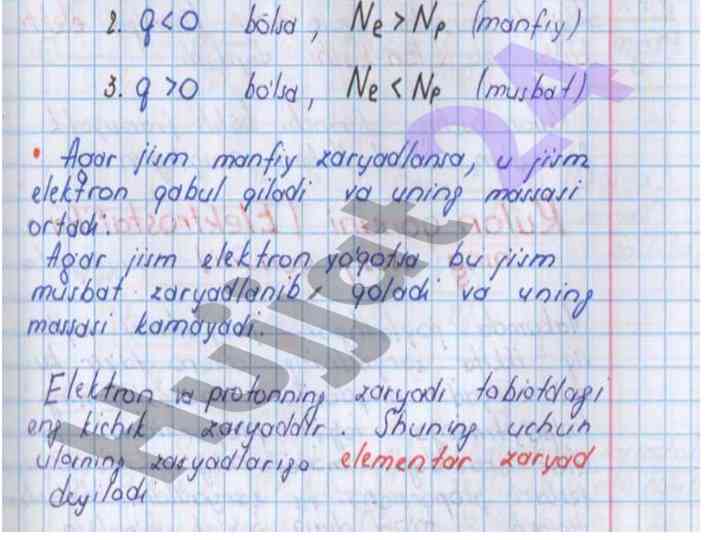 2. q<0 bo'lsa, Ne > Np (manfiy)
3. q >0 bo'lsa, Ne < Np (musbat)
• Agar jism manfiy zaryadlansa, u jism
elektron qabul qiladi va uning massasi
ortadi.
Agar jism elektron yo'qotsa bu jism
musbat zaryadlanib, qoladi va uning
massasi kamayadi.
Elektron va protonning zaryadi tabiatdagi
eng kichik zaryaddir. Shuning uchun
ularning zaryadlariga elementar zaryad
deyiladi
Hujjat 24